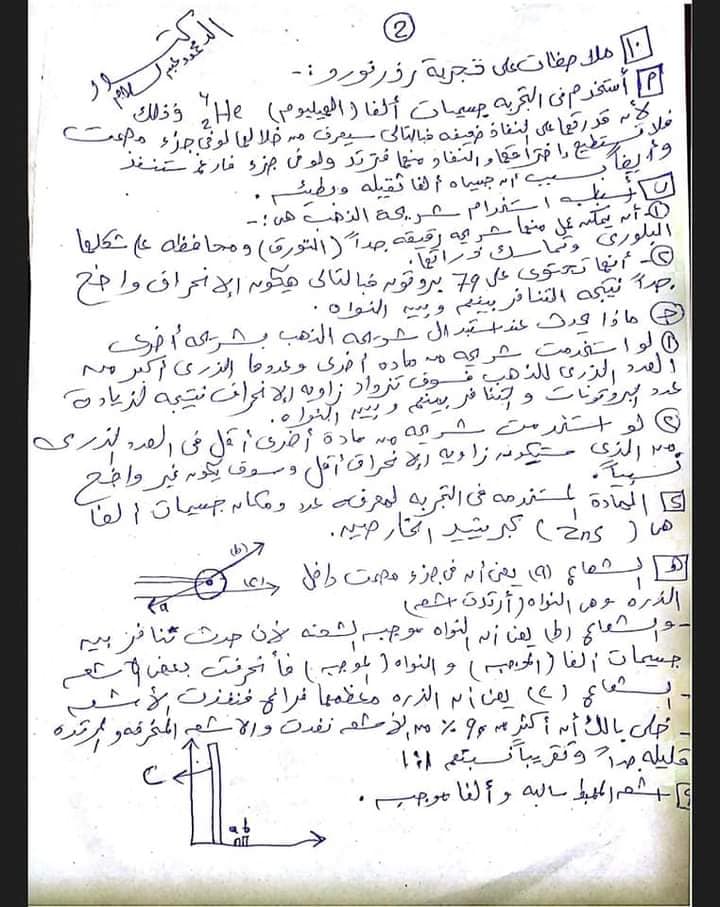 2
الدكتور
محمود عبد السلام
10 ملاحظات على تجربة رذرفورد :-
P أستخدم فى التجربه جسيمات ألفا (الهيليوم) 4 2 He وذلك
لأنه قدرتها على النفاذ ضعيفه فبالتالى سيعرف من خلالها لوفى جزء مصمت
فلا تستطيع اختراقها والنفاذ منها فترتد ولوفى جزء فارغ ستنفذ
وأيضاً بسبب أن جسيمات ألفا ثقيله وبطيئه .
ب أسباب استخدام شريحة الذهب هى :-
1- أن يمكن عمل منها شريحه رقيقه جداً (التورق) ومحافظه على شكلها
البلورى وتماسك ذراتها.
2- أنها تحتوى على 79 بروتون فبالتالى هيكون الإنحراف واضح
جداً نتيجه التنافر بينهم وبين النواه .
ج ماذا يحدث عند استبدال شريحه الذهب بشريحه أخرى
1 لو استخدمت شريحه من ماده أخرى وعددها الذرى أكبر من
العدد الذرى للذهب فسوف تزداد زاويه الإنحراف نتيجة لزيادة
عدد البروتونات والتنافر بينهم وبين النواه.
2 لو استخدمت شريحه من مادة أخرى أقل فى العدد الذرى
من الذى ستكون زاويه الإنحراف أقل وسوف يكون غير واضح
نسبياً.
د المادة المستخدمه فى التجربه لمعرفه عدد ومكان جسيمات ألفا
هى (ZnS) كبريتيد الخارصين.
هـ الشعاع (a) يعنى أن فى جزء مصمت داخل
(b)
(c)
a
الذره وهى النواه (أرتدت أشعه)
- والشعاع (b) يعنى أن النواه موجبه الشحنه لأن حدث تنافر بين
جسيمات ألفا (الموجبه) و النواه (الموجبه) فأنحرفت بعض الأشعه
- الشعاع (c) يعنى أن الذره معظمها فراغ فنفذت الأشعه
- خلى بالك أن أكثر من 90 % من الأشعه نفذت والأشعه المنحرفه والمرتده
قليله جداً وتقريباً نسبتهم 1:1
C
a b
و أشعه المهبط سالبه وألفا موجبه .